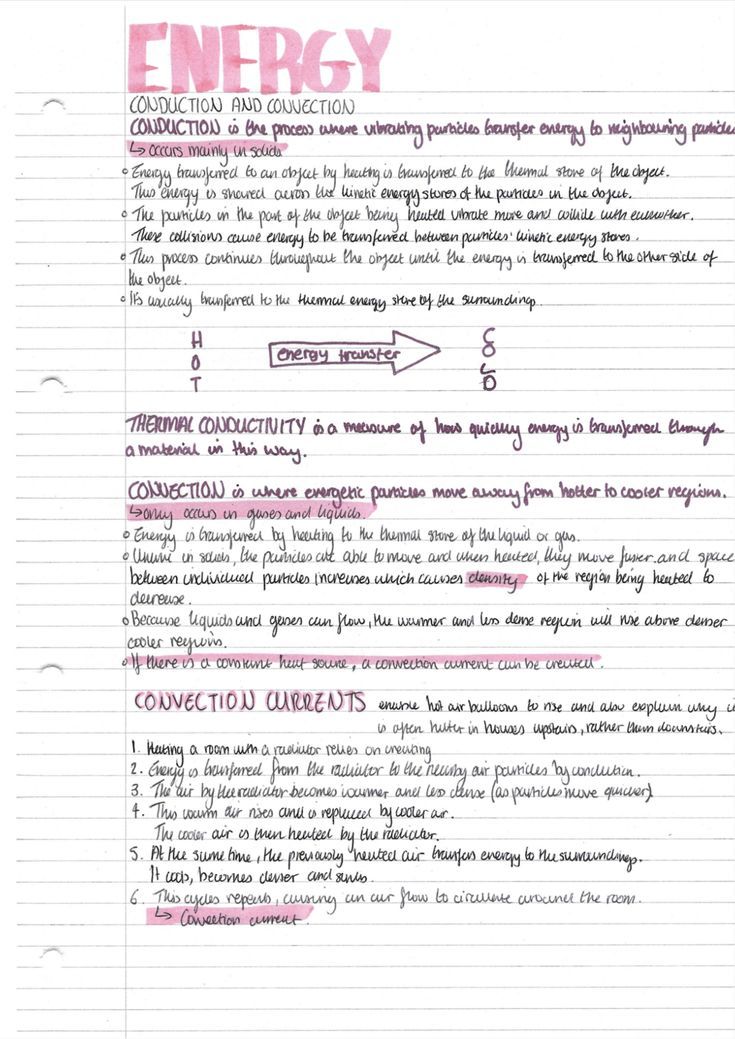 ENERGY
CONDUCTION AND CONVECTION
CONDUCTION is the process where vibrating particles transfer energy to neighbouring particles
↳ occurs mainly in solids
○ Energy transferred to an object by heating is transferred to the thermal store of the object.
This energy is shared across the kinetic energy stores of the particles in the object.
○ The particles in the part of the object being heated vibrate more and collide with eachother.
These collisions cause energy to be transferred between particles' kinetic energy stores.
○ This process continues throughout the object until the energy is transferred to the other side of
the object.
○ It's usually transferred to the thermal energy store of the surroundings.
HOT energy transfer COLD
THERMAL CONDUCTIVITY is a measure of how quickly energy is transferred through
a material in this way.
CONVECTION is where energetic particles move away from hotter to cooler regions.
↳ only occurs in gases and liquids.
○ Energy is transferred by heating to the thermal store of the liquid or gas.
○ Unlike in solids, the particles are able to move and when heated, they move faster and space
between individual particles increases which causes density of the region being heated to
decrease.
○ Because liquids and gases can flow, the warmer and less dense region will rise above denser
cooler regions.
○ If there is a constant heat source, a convection current can be created.
CONVECTION CURRENTS enable hot air balloons to rise and also explain why i
is often hotter in houses upstairs, rather than downstairs.
1. Heating a room with a radiator relies on creating
2. Energy is transferred from the radiator to the nearby air particles by conduction.
3. The air by the radiator becomes warmer and less dense (as particles move quicker)
4. This warm air rises and is replaced by cooler air.
The cooler air is then heated by the radiator.
5. At the same time, the previously heated air transfers energy to the surroundings.
It cools, becomes denser and sinks.
6. This cycles repeats, causing an air flow to circulate around the room.
↳ Convection current.